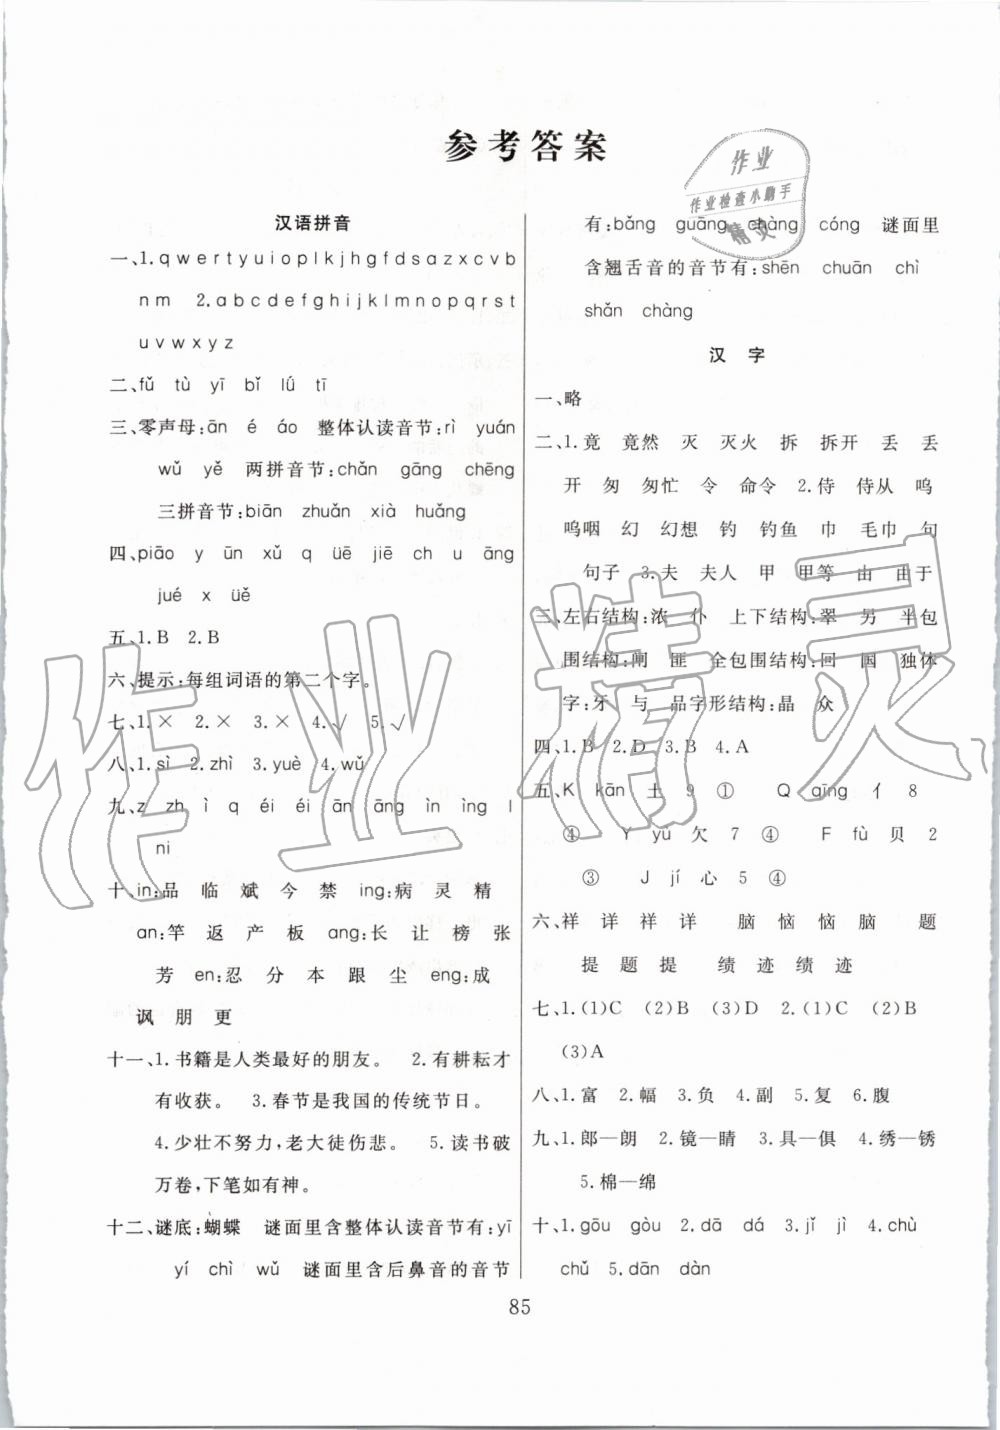 参考答案
作业
作业检查小助手
精灵
汉语拼音
一、1.qwertyuioplkjhgfdsazxcvb
nm 2.abcdefghijklmnopqrst
uvwxyz
二、fǔ tù yī bǐ lú tī
三、零声母:ān é áo 整体认读音节:rì yuán
wǔ yě 两拼音节:chǎn gāng chēng
三拼音节:biān zhuǎn xià huǎng
四、piāo y ūn xǔ q üē jiē ch u āng
jué x üě
五、1.B 2.B
六、提示:每组词语的第二个字。
七、1.× 2.× 3.× 4.√ 5.√
八、1.sì 2.zhì 3.yuè 4.wǔ
九、z zh ì q éi éi ān āng ìn ìng l
ni
十、in:品 临 斌 今 禁 ing:病 灵 精
an:竿 返 产 板 ang:长 让 榜 张
芳 en:忍 分 本 跟 尘 eng:成
讽 朋 更
十一、1.书籍是人类最好的朋友。 2.有耕耘才
有收获。 3.春节是我国的传统节日。
4.少壮不努力,老大徒伤悲。 5.读书破
万卷,下笔如有神。
十二、谜底:蝴蝶 谜面里含整体认读音节有:yī
yí chì wǔ 谜面里含后鼻音的音节
有:bǎng guāng chàng cóng 谜面里
含翘舌音的音节有:shēn chuān chì
shǎn chàng
汉 字
一、略
二、1.竟 竟然 灭 灭火 拆 拆开 丢 丢
开 匆 匆忙 令 命令 2.侍 侍从 呜
呜咽 幻 幻想 钓 钓鱼 巾 毛巾 句
句子 3.夫 夫人 甲 甲等 由 由于
三、左右结构:浓 仆 上下结构:翠 另 半包
围结构:闸 匪 全包围结构:回 国 独体
字:牙 与 品字形结构:晶 众
四、1.B 2.D 3.B 4.A
五、K kān 土 9 ① Q qīng 亻 8
④ Y yù 欠 7 ④ F fù 贝 2
③ J jí 心 5 ④
六、祥 详 祥 详 脑 恼 恼 脑 题
提 题 提 绩 迹 绩 迹
七、1.(1)C (2)B (3)D 2.(1)C (2)B
(3)A
八、1.富 2.幅 3.负 4.副 5.复 6.腹
九、1.郎—朗 2.镜—睛 3.具—俱 4.绣—锈
5.棉—绵
十、1.gōu gòu 2.dā dá 3.jǐ jì 4.chù
chǔ 5.dān dàn
85
作业精灵